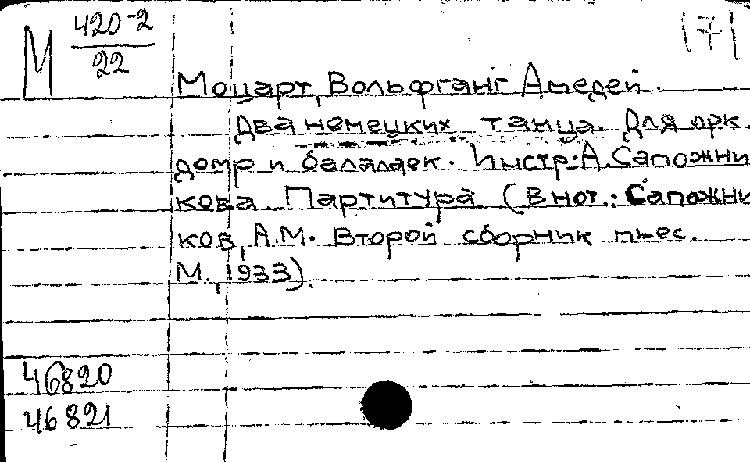 М 420-2
22
|7|
Моцарт, Вольфганг Амедей.
Два немецких танца. Для орк.
домр и балалаек. Инстр. А. Сапожни
кова. Партитура (В нот.: Сапожни
ков, А.М. Второй сборник пьес.
М., 1933).
46820
46821